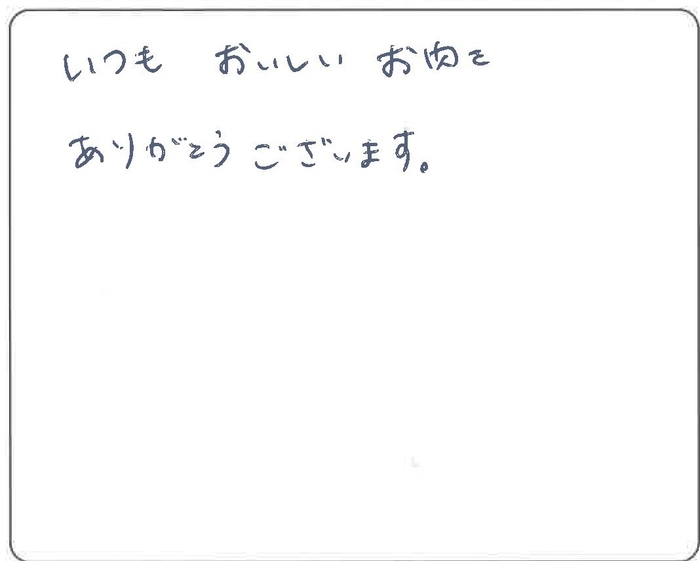 いつも おいしい お肉を
ありがとうございます。